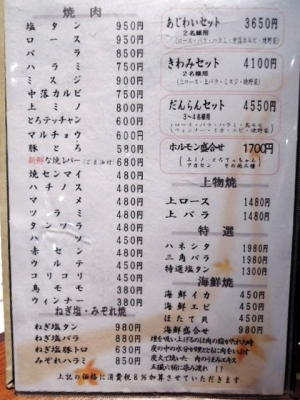 焼肉
塩タン 950円
ロース 950円
バラ 850円
ハラミ 750円
ミスジ 900円
中落カルビ 750円
上ミノ 800円
とろテッチャン 600円
マルチョウ 600円
豚とろ 590円
新鮮な焼レバー(ごま油付) 680円
焼センマイ 480円
ハチノス 480円
マメ 480円
ツラミ 480円
タンツラ 480円
ハツ 450円
赤セン 480円
ウルテ 450円
コリコリ 450円
鳥モモ 390円
ウィンナー 380円
ねぎ塩・みぞれ焼
ねぎ塩タン 980円
ねぎ塩バラ 880円
ねぎ塩豚トロ 630円
みぞれハラミ 850円
あじわいセット 3650円
2名様用
(ロース・バラ・ハラミ・中落カルビ・焼野菜)
きわみセット 4100円
2名様用
(上ロース・上バラ・ミスジ・焼野菜)
だんらんセット 4550円
3〜4名様用
ロース・バラ・ハラミ・鳥モモ
ウィンナー・イカ・エビ・焼野菜
ホルモン盛合せ 1700円
上ミノ とろてっちゃん
アカセン その他三種
上物焼
上ロース 1480円
上バラ 1480円
特選
ハネシタ 1980円
三角バラ 1980円
特選塩タン 1300円
海鮮焼
海鮮イカ 450円
海鮮エビ 450円
ほたて貝 450円
海鮮盛合せ 980円
上記の価格に消費税8%加算させていただきます